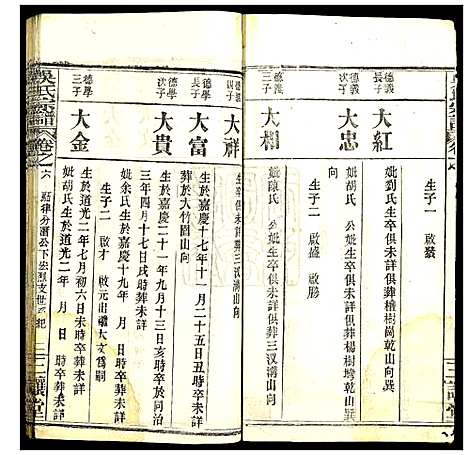 德義
長子
大紅
妣劉氏生卒俱未詳俱葬檀樹崗乾山向巽
生子一 啟發
德義
次子
大忠
妣胡氏 公妣生卒俱未詳俱葬楊樹塆乾山巽
向
生子二 啟盛 啟勝
三子
大相
妣陳氏 公妣生卒俱未詳俱葬三汊溝山向
四子
大祥
生卒俱未詳葬三汊溝山向
德學
長子
大富
生於嘉慶十七年十一月二十五日丑時卒
葬於大竹園山向
德學
次子
大貴
生於嘉慶二十一年九月十三日亥時卒於
三年四月十七日戌時葬未詳
妣余氏生於嘉慶十九年 月 日 時卒葬未詳
生子二 啟才 啟元出繼大文為嗣
德學
三子
大金
生於道光二年七月初六日未時卒葬未詳
妣胡氏生於道光二年 月 日 時卒葬未詳
吳氏宗譜 卷之六
三讓堂